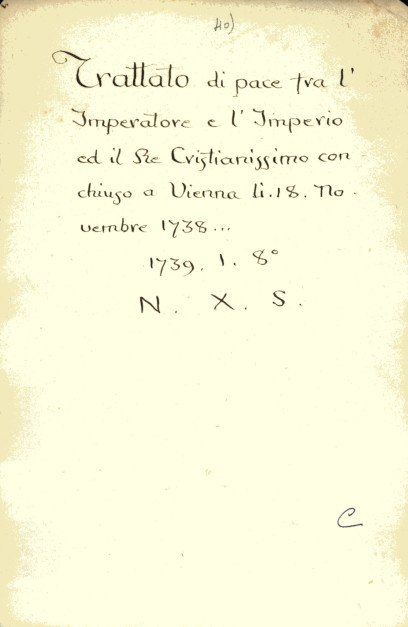 40)
Trattato di pace tra l'
Imperatore e l'Imperio
ed il Re Cristianissimo con
chiuso a Vienna li.18. No.
vembre 1738...
1739. 1. 8°
N. X. S.
C